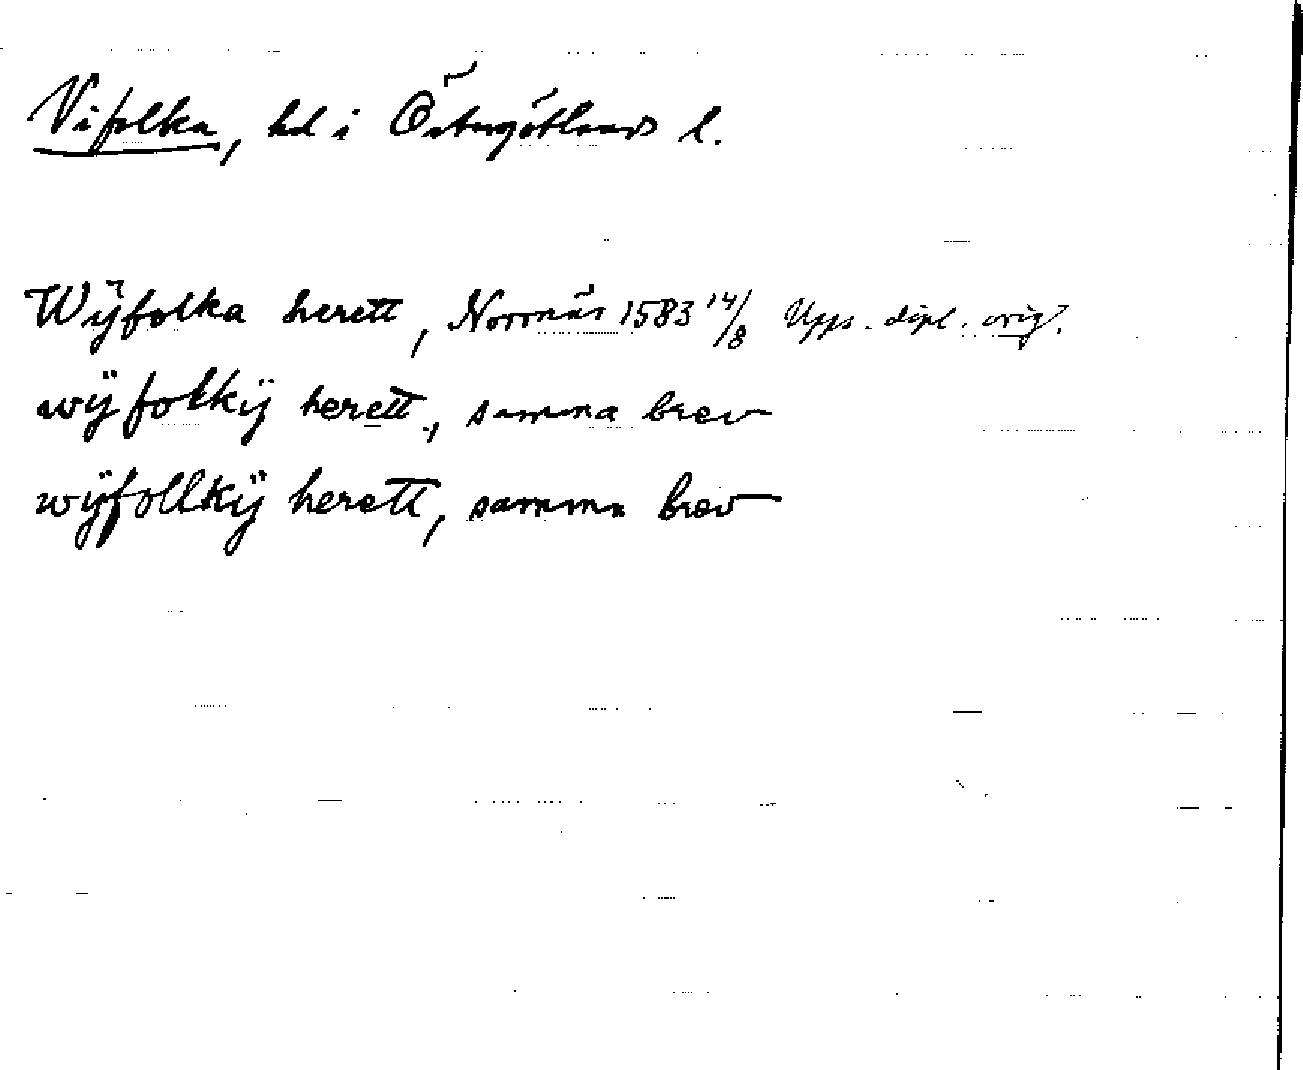 Vifolka, hd i Östergötlands l.
Wÿfolka herett, Norrnäs 1583 14/8 Upps. dipl. orig.
wÿfolkÿ herett, samma brev
wÿfollkÿ herett, samma brev